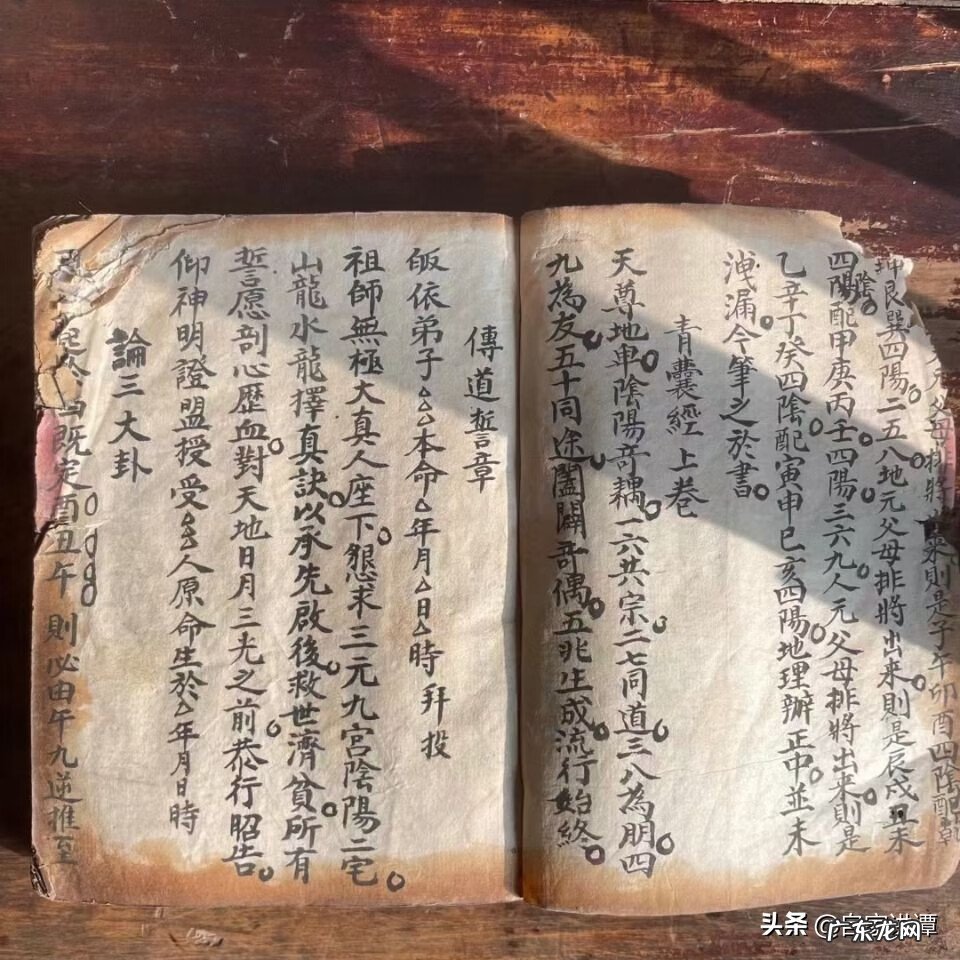 元父母排將出來則是子午卯酉四陰配乾
坤艮巽四陽二五八地元父母排將出来則是辰戍丑未
四陰
陽配甲庚丙壬四陽三六九人元父母排將出来則是
乙辛丁癸四陰配寅申巳亥四陽地理辨正中並未
洩漏今筆之於書
青囊經上卷
天尊地卑陰陽奇耦一六共宗二七同道三八為朋四
九為友五十同途闔闢奇偶五兆生成流行始終
傳道誓章
皈依弟子△△△本命△年月△日△時拜投
祖師無極大真人座下懇求三元九宮陰陽二宅
山龍水龍擇真訣以承先啟後救世濟貧所有
誓愿剖心歷血對天地日月三光之前恭行昭告
仰神明證盟授受△△人原命生於△年月日時
論三大卦
既定酉丑午則必由午九逆推至
头条 @名家讲谭
广东龙网